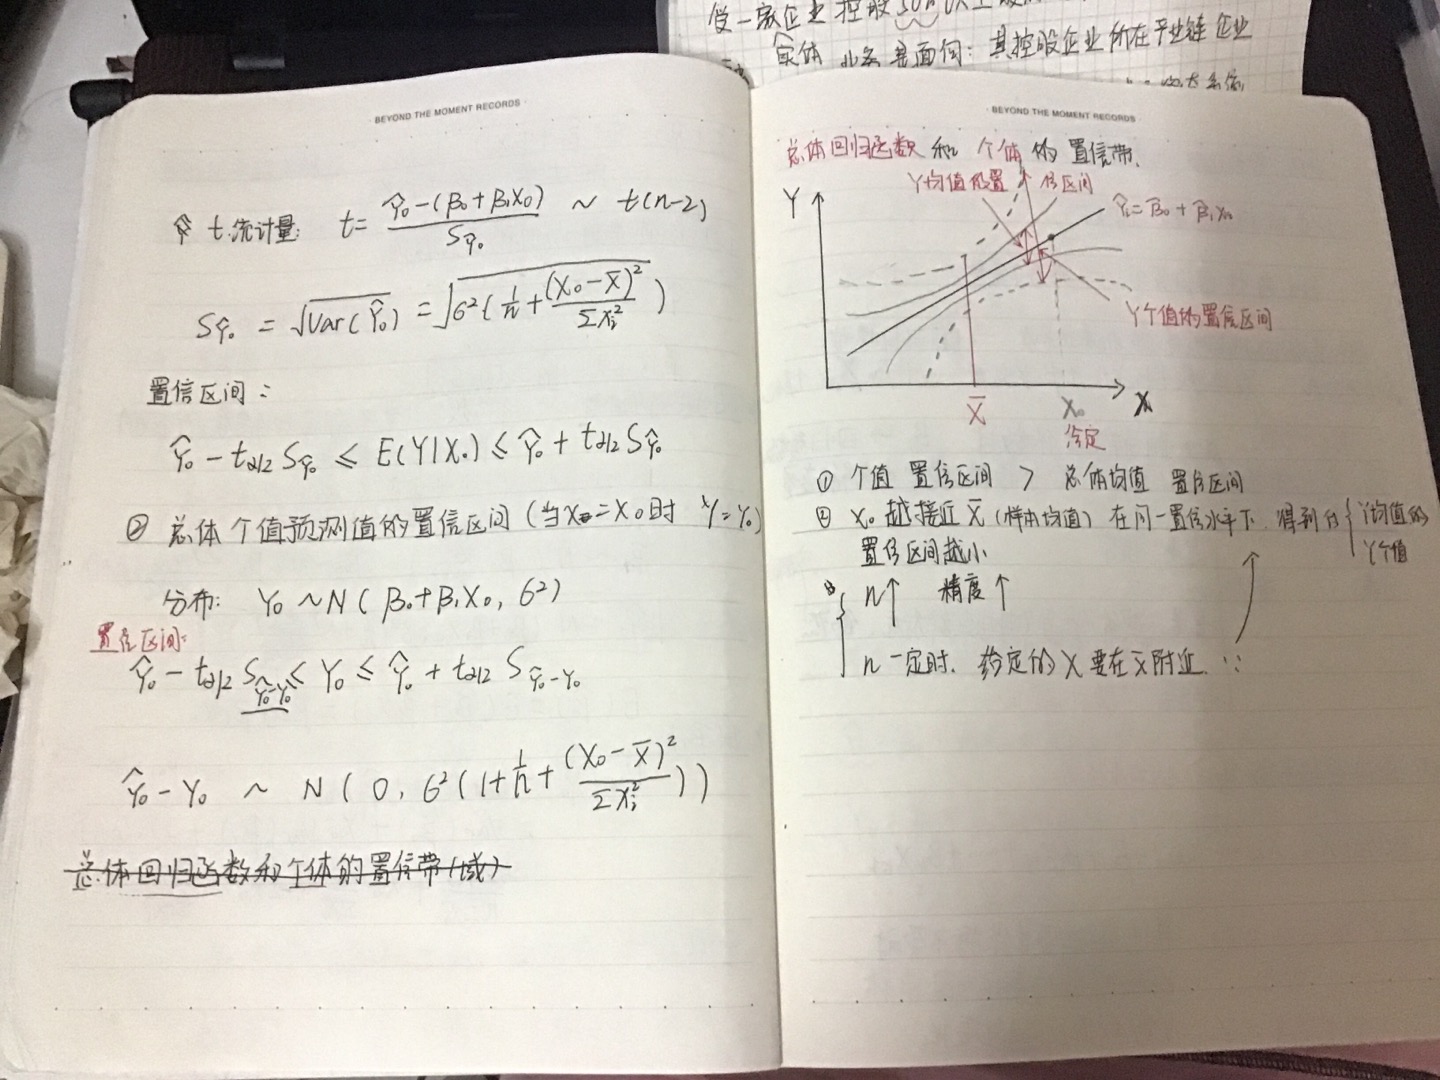 受一家企业控股50%以上
实体 业务是面向：其控股企业所在产业链企业
BEYOND THE MOMENT RECORDS
t统计量: t= Ŷ₀-(β₀+β₁X₀) / S_Ŷ₀ ~ t(n-2)
S_Ŷ₀ = √Var(Ŷ₀) = √6²(1/n+(X₀-X̄)²/Σxᵢ²)
置信区间：
Ŷ₀ - t_α/2 S_Ŷ₀ ≤ E(Y|X₀) ≤ Ŷ₀ + t_α/2 S_Ŷ₀
② 总体个值预测值的置信区间(当X=X₀时 Y=Y₀)
分布: Y₀ ~N( β₀+β₁X₀, 6²)
置信区间:
Ŷ₀ - t_α/2 S_Ŷ₀-Y₀ ≤ Y₀ ≤ Ŷ₀ + t_α/2 S_Ŷ₀-Y₀
Ŷ₀ - Y₀ ~ N ( 0, 6²(1+1/n+(X₀-X̄)²/Σxᵢ²))
总体回归函数和个体的置信带(域)
BEYOND THE MOMENT RECORDS
总体回归函数 和 个体 的 置信带.
Y均值的置信区间
Y
Ŷᵢ= β₀ + β₁Xᵢ
Y个值的置信区间
X̄
X₀
X
给定
① 个值 置信区间 > 总体均值 置信区间
② X₀ 越接近 x̄ (样本均值) 在同一置信水平下. 得到的 { Y均值的
Y个值
置信区间越小
{ n↑ 精度↑
n 一定时. 给定的X要在x̄附近. ∵